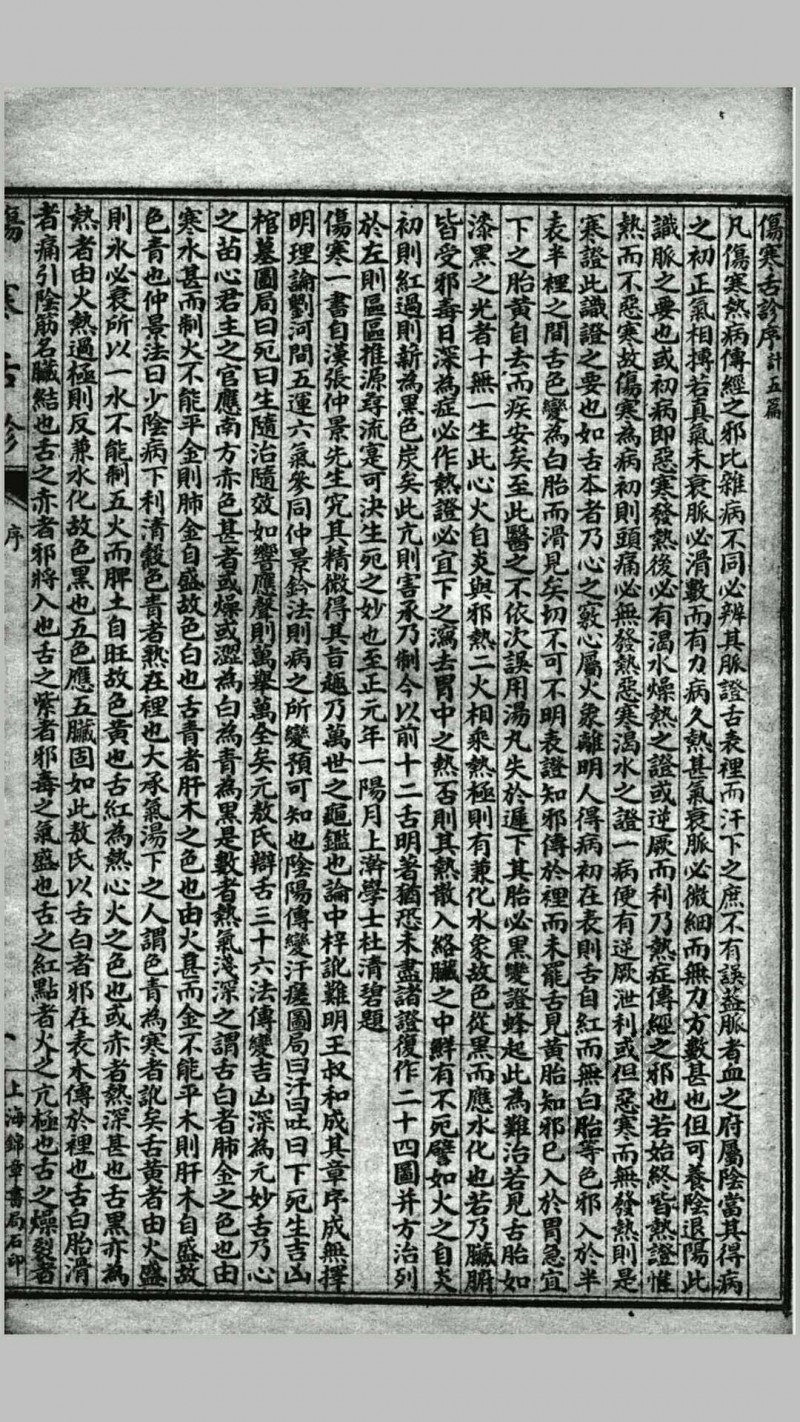 傷寒舌診序計五篇
凡傷寒熱病傳經之邪比雜病不同必辨其脈證舌表裡而汗下之庶不有誤葢脈者血之府屬陰當其得病
之初正氣相搏若真氣未衰脈必滑數而有力病久熱甚氣衰脈必微細而無力方數甚也但可養陰退陽此
識脈之要也或初病即惡寒發熱後必有渴水燥熱之證或逆厥而利乃熱症傳經之邪也若始終皆熱證惟
熱而不惡寒故傷寒為病初則頭痛必無發熱惡寒渴水之證一病便有逆厥泄利或但惡寒而無發熱則是
寒證此識證之要也如舌本者乃心之竅心屬火象離明人得病初在表則舌自紅而無白胎等色邪入於半
表半裡之間舌色變為白胎而滑見矣切不可不明表證知邪傳於裡而未罷舌見黃胎知邪已入於胃急宜
下之胎黃自去而疾安矣至此醫之不依次誤用湯丸失於遲下其胎必黑變證蜂起此為難治若見舌胎如
漆黑之光者十無一生此心火自炎與邪熱二火相乘熱極則有兼化水象故色從黑而應水化也若乃臟腑
皆受邪毒日深為症必作熱證必宜下之瀉去胃中之熱否則其熱散入絡臟之中鮮有不死譬如火之自炎
初則紅過則薪為黑色炭矣此亢則害承乃制今以前十二舌明著猶恐未盡諸證復作二十四圖并方治列
於左則區區推源尋流寔可決生死之妙也至正元年一陽月上澣學士杜清碧題
傷寒一書自漢張仲景先生究其精微得其旨趣乃萬世之龜鑑也論中梓訛難明王叔和成其章序成無擇
明理論劉河間五運六氣參同仲景鈐法則病之所變預可知也陰陽傳變汗瘥圖局曰汗曰吐曰下死生吉凶
棺墓圖局曰死曰生隨治隨效如響應聲則萬舉萬全矣元敖氏辯舌三十六法傳變吉凶深為元妙舌乃心
之苗心君主之官應南方赤色甚者或燥或澀為白為青為黑是數者熱氣淺深之謂舌白者肺金之色也由
寒水甚而制火不能平金則肺金自盛故色白也舌青者肝木之色也由火甚而金不能平木則肝木自盛故
色青也仲景法曰少陰病下利清穀色青者熱在裡也大承氣湯下之人謂色青為寒者訛矣舌黃者由火盛
則水必衰所以一水不能制五火而脾土自旺故色黃也舌紅為熱心火之色也或赤者熱深甚也舌黑亦為
熱者由火熱過極則反兼水化故色黑也五色應五臟固如此敖氏以舌白者邪在表未傳於裡也舌白胎滑
者痛引陰筋名臟結也舌之赤者邪將入也舌之紫者邪毒之氣盛也舌之紅點者火之亢極也舌之燥裂者
傷寒舌診
序
上海錦章書局石印